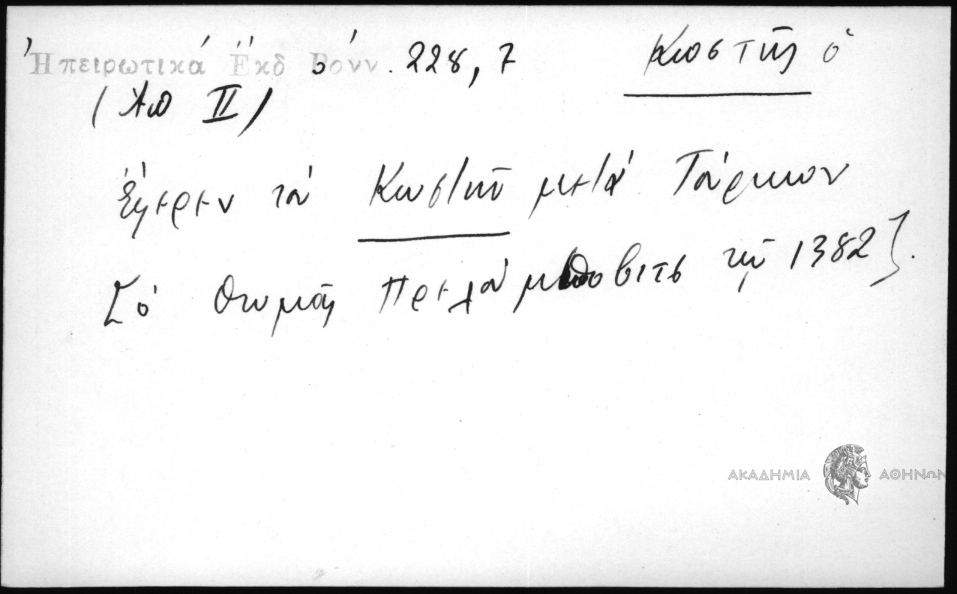 Ἠπειρωτικά Ἐκδ Βόνν. 228, 7 Κωστής ὁ
II)
Ἔφερεν τόν Κωστήν μετά Τούρκων
[ὁ Θωμᾶς Πρελούμποβιτς τῷ 1382].
ΑΚΑΔΗΜΙΑ ΑΘΗΝΩΝ